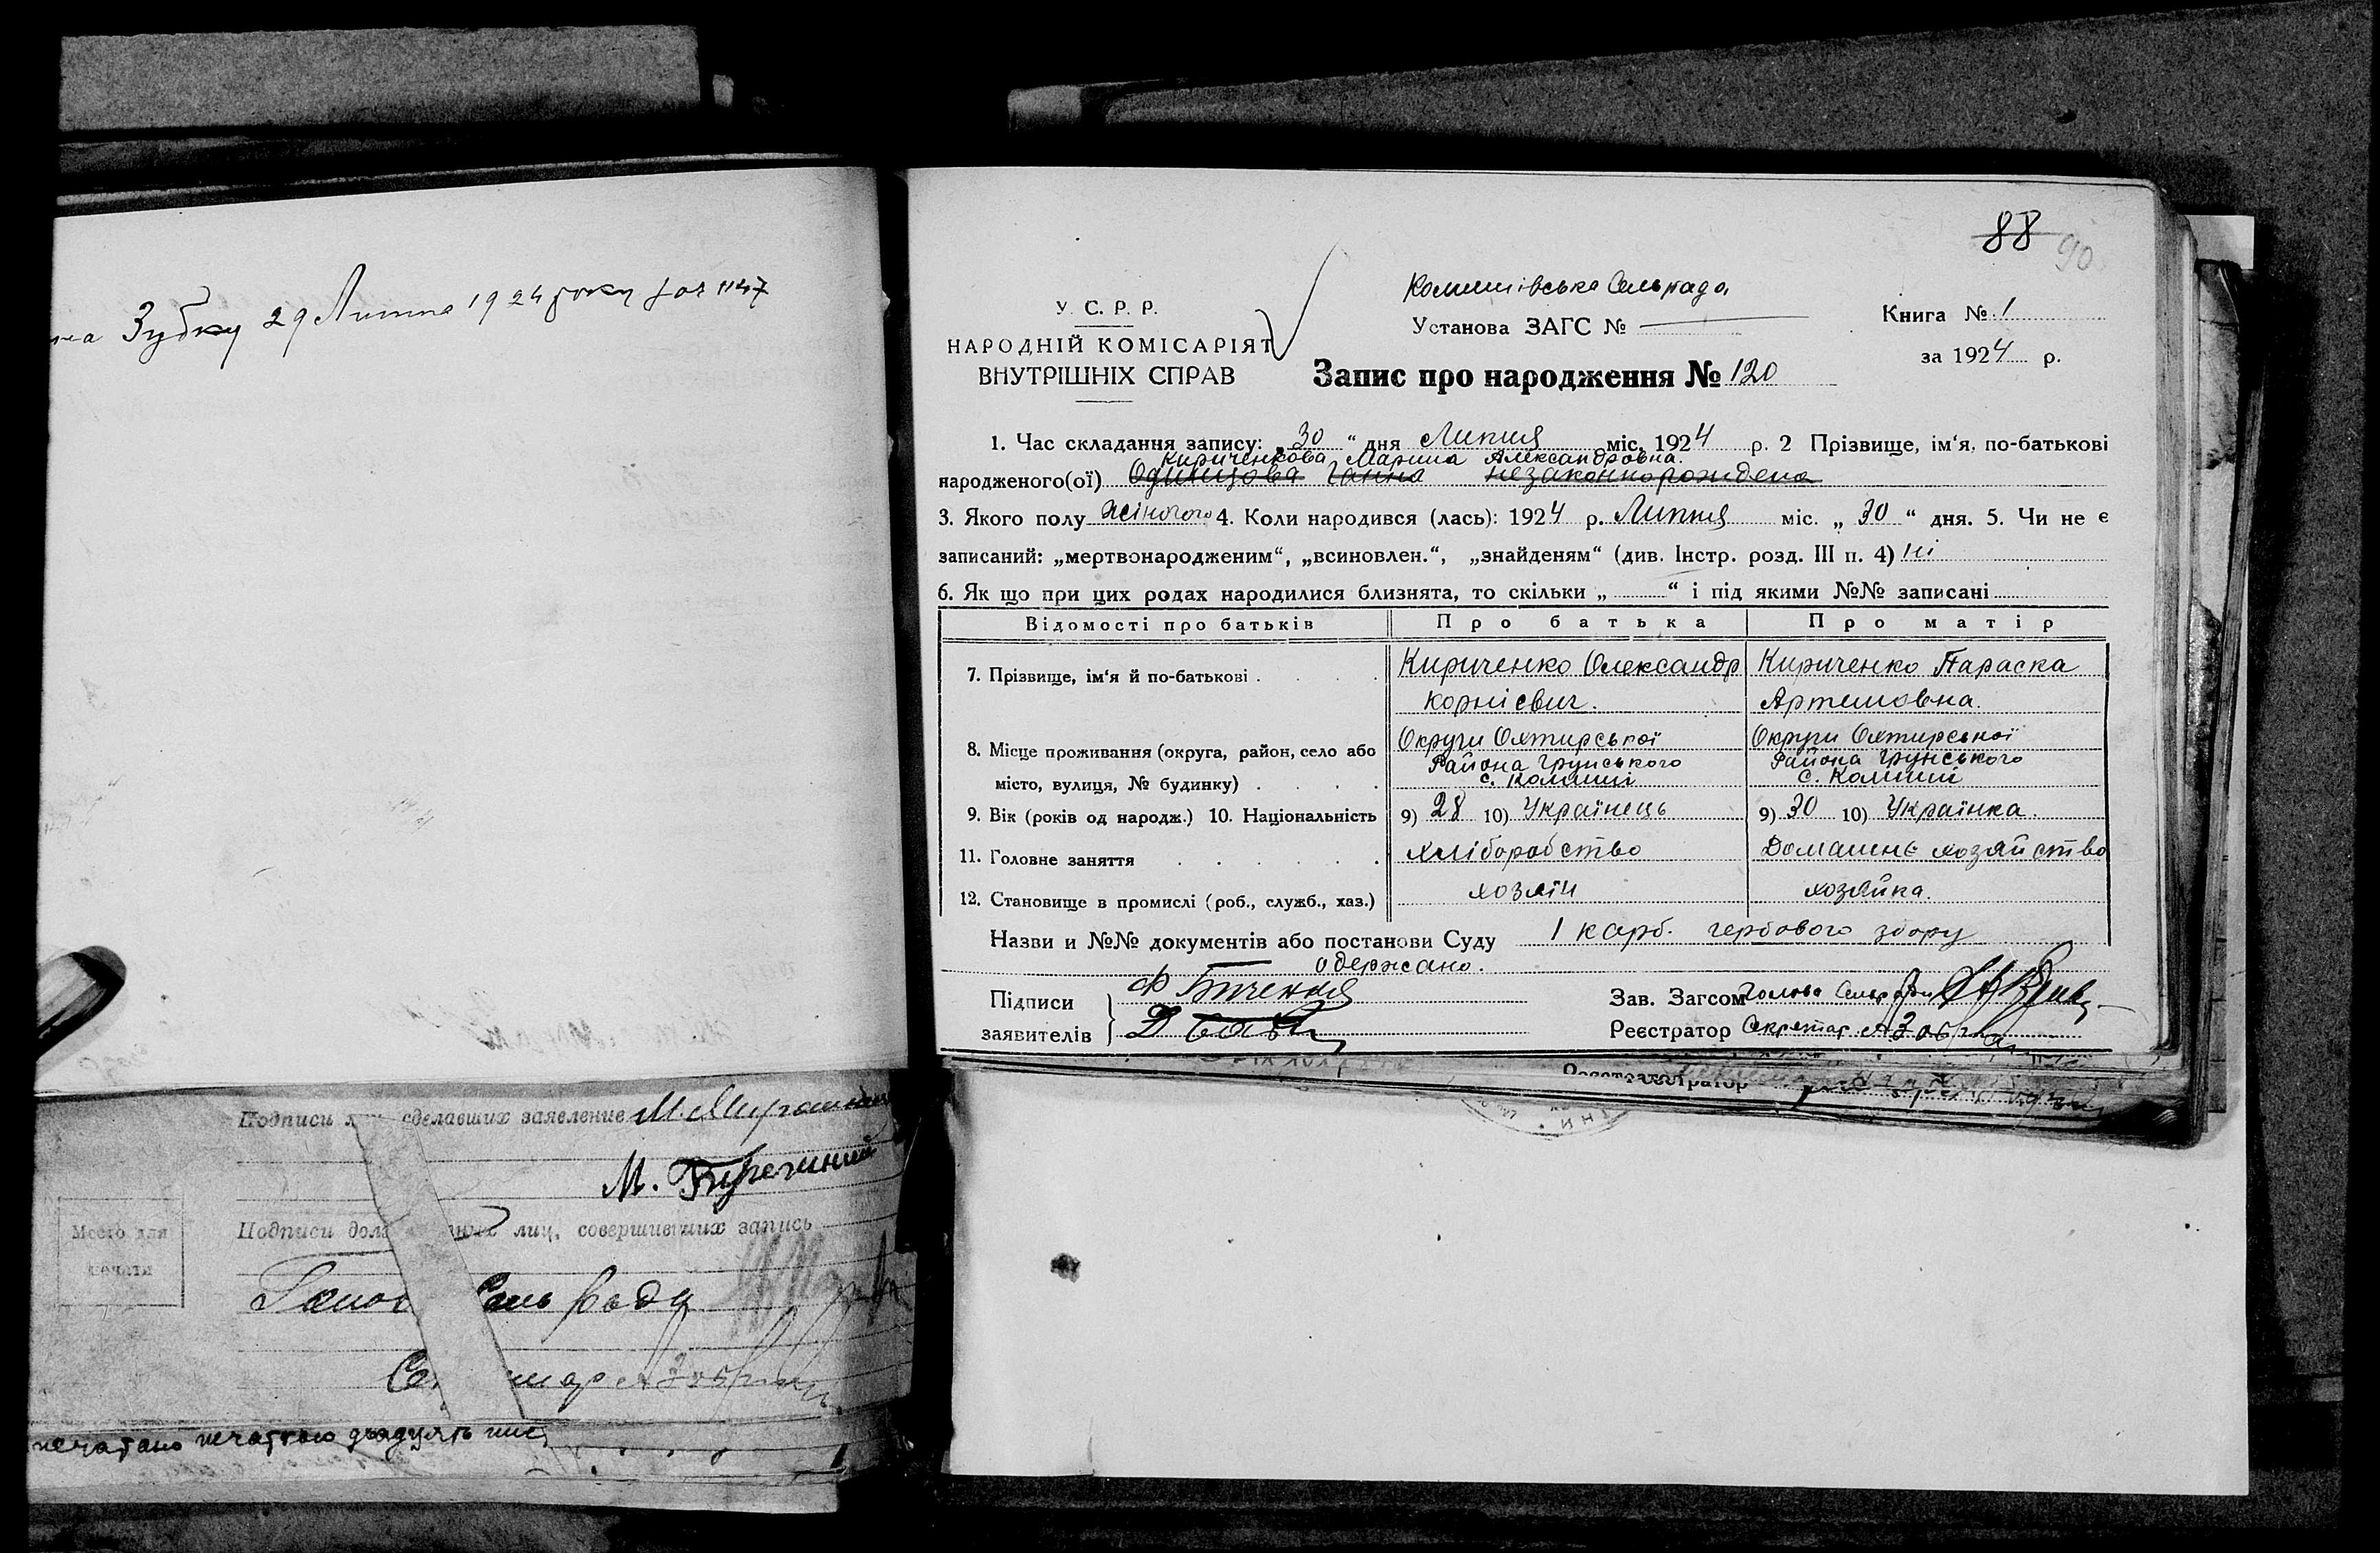 Зубку 29 Липня 1924 року
88
90
Комишівська Сельрада
У. С. Р. Р.
Установа ЗАГС №
Книга № 1
НАРОДНІЙ КОМІСАРІЯТ
ВНУТРІШНІХ СПРАВ
за 1924 р.
Запис про народження № 120
1. Час складання запису: „30“ дня Липня міс. 1924 р. 2 Прізвище, ім‘я, по-батькові
Кириченкова Марина Александровна
народженого(ої) Одинцова Ганна незаконнорождена
3. Якого полу жіночого 4. Коли народився (лась): 1924 р. Липня міс. „30“ дня. 5. Чи не є
записаний: „мертвонародженим“, „всиновлен.“, „знайденям“ (див. Інстр. розд. III п. 4) ні
6. Як що при цих родах народилися близнята, то скільки „ “ і під якими №№ записані
Відомості про батьків Про батька Про матір
7. Прізвище, ім‘я й по-батькові . . . . Кириченко Олександр Кириченко Параска
Корнієвич. Артемовна.
8. Місце проживання (округа, район, село або Округи Охтирської Округи Охтирської
Района Грунського Района Грунського
місто, вулиця, № будинку) . . . . с. Комиші с. Комиші
9. Вік (років од народж.) 10. Національність 9) 28 10) Українець 9) 30 10) Українка.
11. Головне заняття . . . . . . хліборобство Домашнє хозяйство
12. Становище в промислі (роб., служб., хаз.) хозяїн хозяйка.
Назви и №№ документів або постанови Суду 1 карб. гербового збору
одержано.
Підписи
заявителів
Зав. Загсом Голова Сельради
Реєстратор Секретар
Подписи сделавших заявление
М.
Подписи лиц, совершивших запись
Место для
печати
Сель Рады
печаткою двадцять